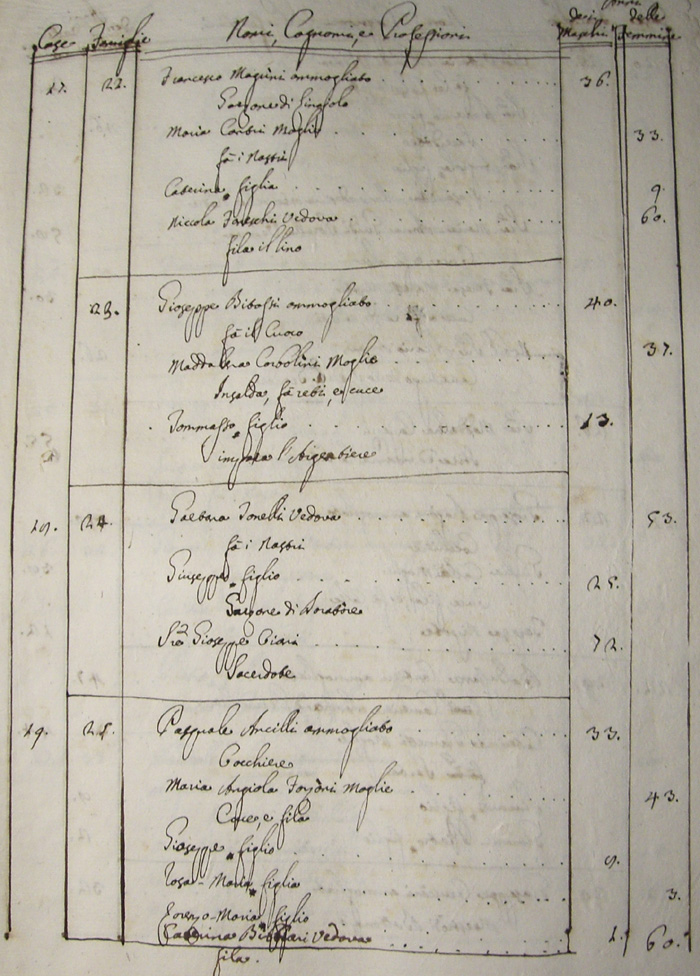 Anni
Case Famiglie Nomi, Cognomi, e Professioni dei Maschi delle Femmine
17. 22. Francesco Magrini ammogliato 36.
Garzone di
Maria Moglie 33.
fà i Nastri
Caterina figlia 9
Niccola Vedova 60.
fila il lino
23. Gioseppe ammogliato 40.
fà il Cuoco
Maddalena Moglie 37.
Insalda, fà rebi, e cuce
Tommasso figlio 13.
impara l'Argentiere
24. Tonelli Vedova 53.
fà i Nastri
Giuseppe figlio 25.
Garzone di
Gioseppe Ciani 72.
Sacerdote
19. 25. Pasquale Ancilli ammogliato 33.
Cocchiere
Maria Angiola Moglie 43.
Cuce, e fila
Gioseppe figlio 9.
Rosa-Maria figlia 3.
Lorenzo-Maria figlio 1.
Caterina Vedova 60.
fila.